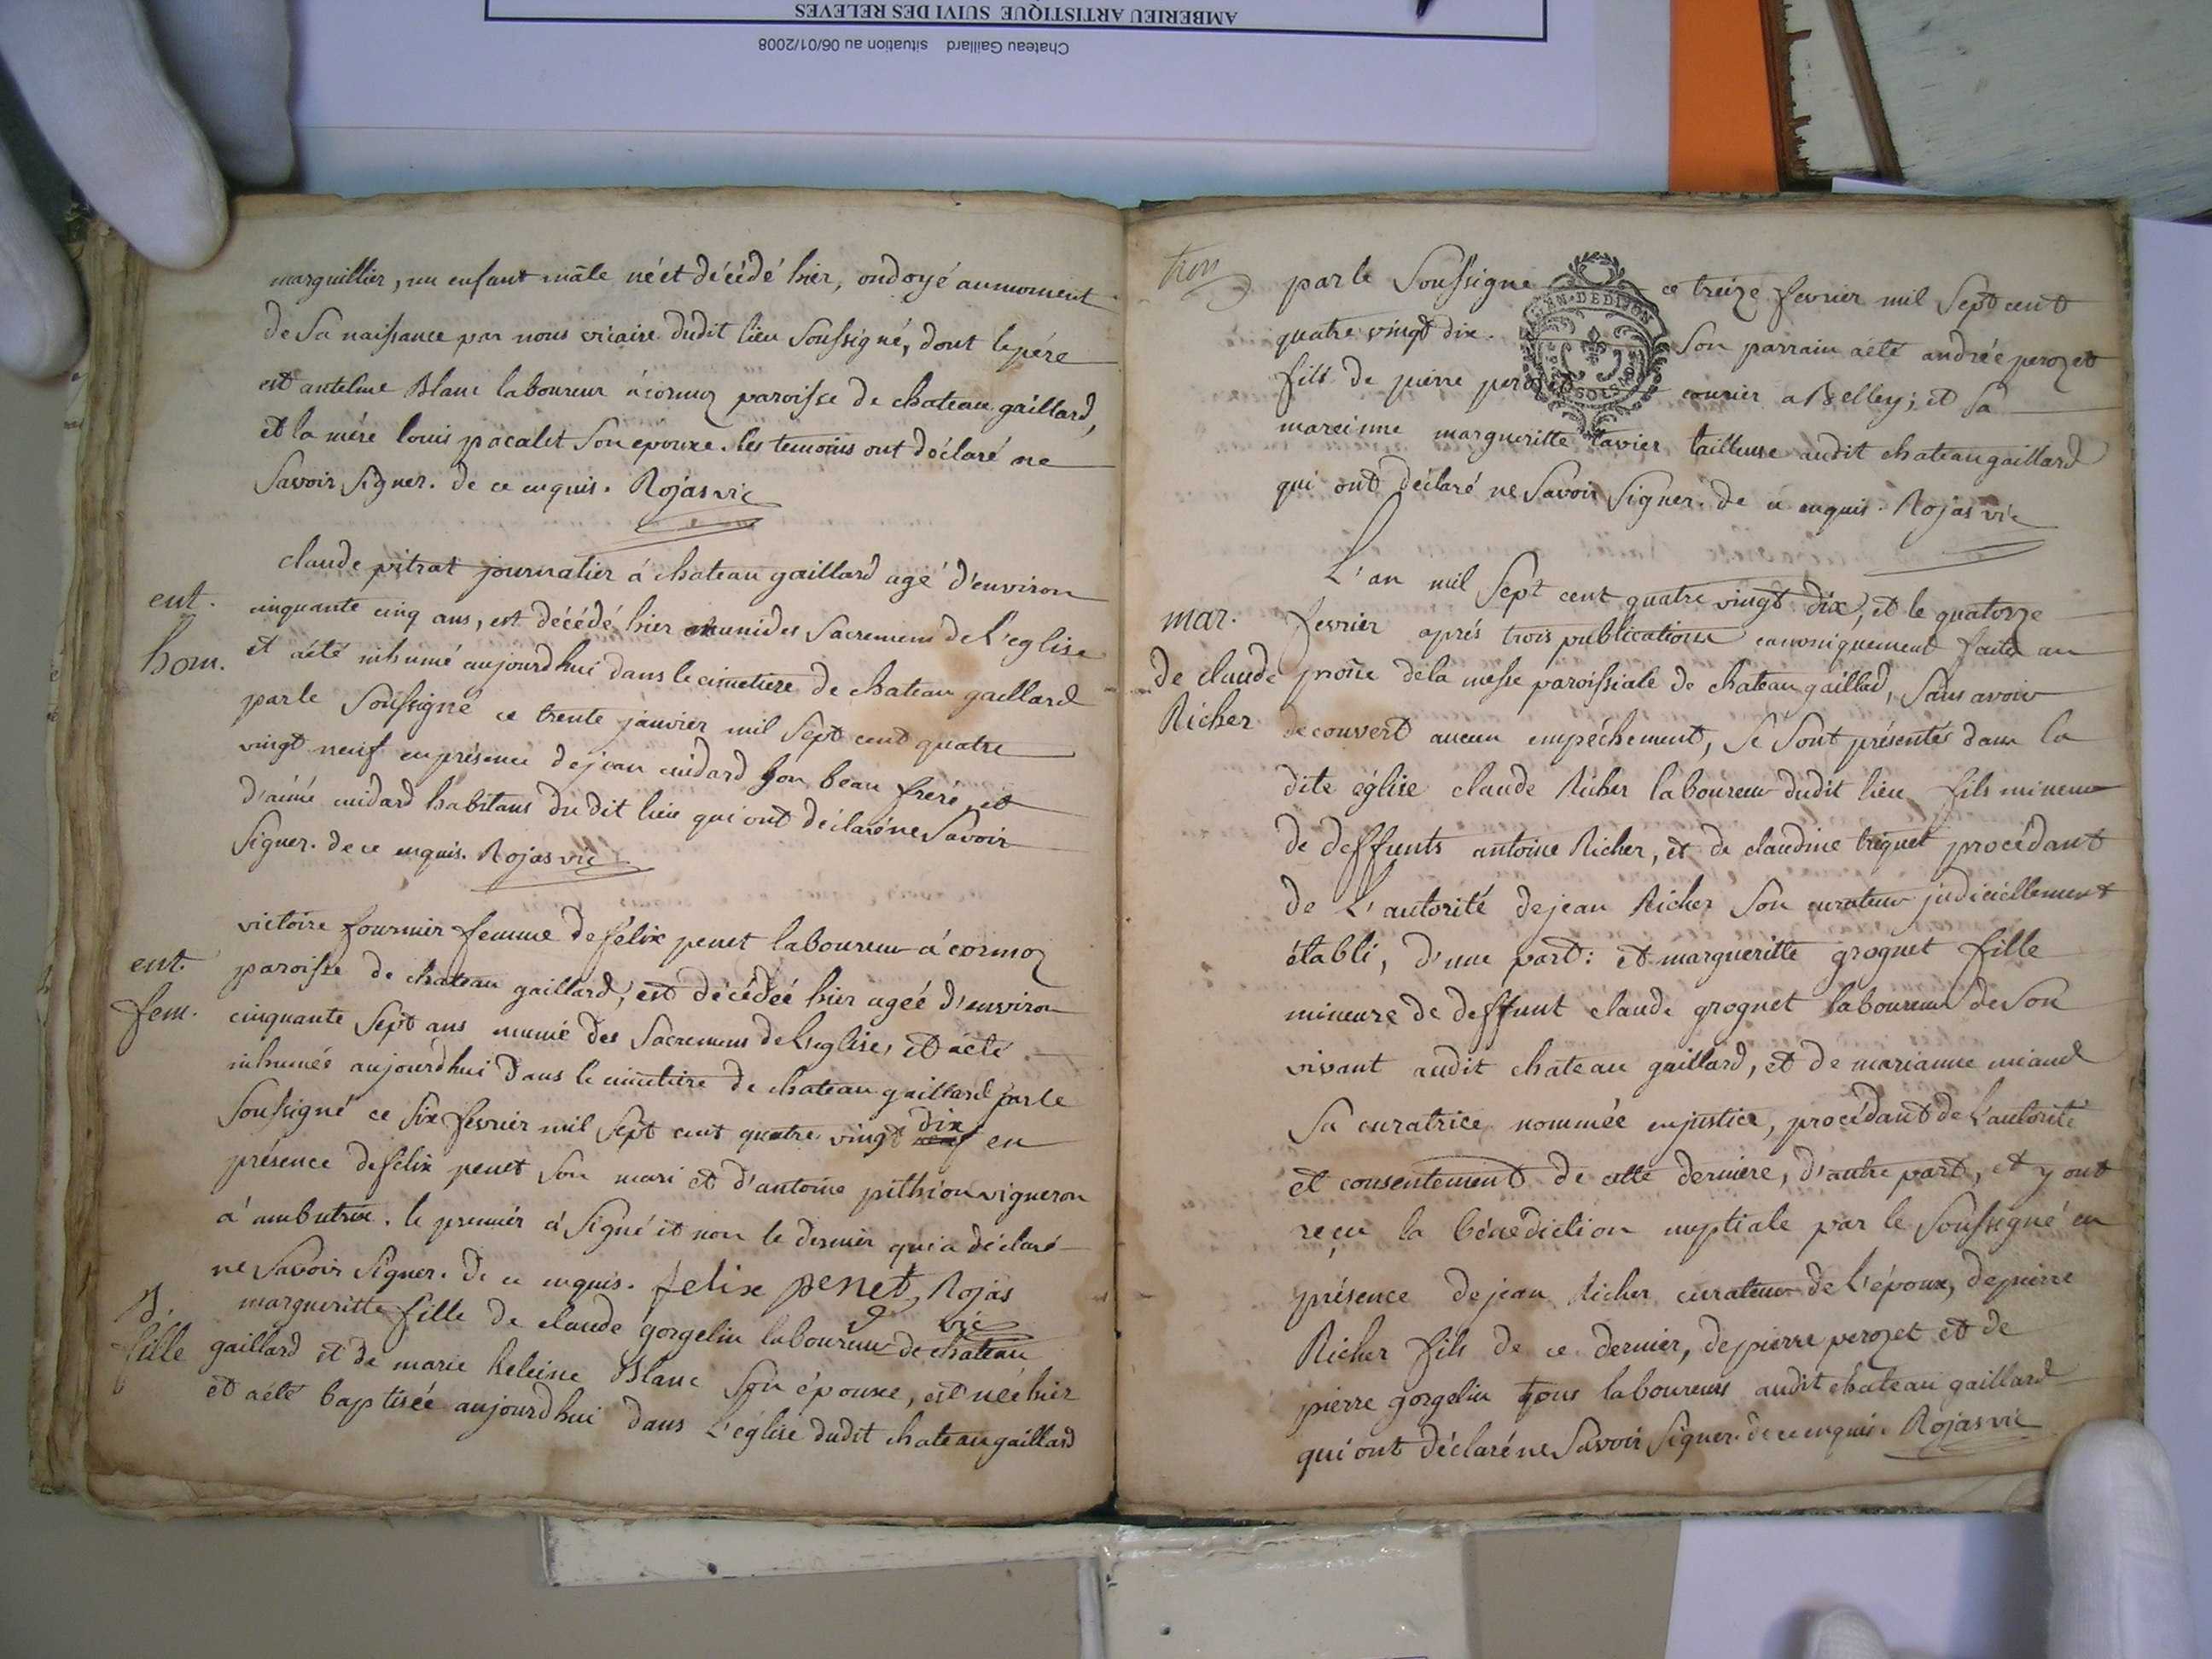 AMBERIEU ARTISTIQUE SUIVI DES RELEVES
Chateau Gaillard situation au 06/01/2008
marguillier, un enfant mâle né et décédé hier, ondoyé au moment
de Sa naissance par nous vicaire dudit lieu Soussigné, dont le pére
est antelme Blanc laboureur à cormoz paroisse de chateau gaillard,
et la mére louis pacalet Son epouxe. les temoins ont déclaré ne
Savoir Signer. de ce enquis. Rojas vic
ent.
hom.
claude pitrat journalier à chateau gaillard agé d'environ
cinquante cinq ans, est décédé hier muni des Sacremens de L'eglise
et aété inhumé aujourdhui dans le cimetiere de chateau gaillard
par le Soussigné ce trente janvier mil Sept cent quatre
vingt neuf en présence de jean cuidard Son beau frére, et
d'aimé cuidard habitans du dit lieu qui ont déclaré ne Savoir
Signer. de ce enquis. Rojas vic
ent.
fem.
victoire fournier femme de félix penet laboureur à cormoz
paroisse de chateau gaillard, est décédée hier agée d'environ
cinquante Sept ans munie des Sacremens de L'eglise, et aété
inhumée aujourdhui dans le cimetiere de chateau gaillard par le
Soussigné ce Six fevrier mil Sept cent quatre vingt dix en
présence de félix penet Son mari et d'antoine pithion vigneron
à ambutrix. le premier à Signé et non le dernier qui a déclaré
ne Savoir Signer. de ce enquis. felix penet, Rojas
vic
B.
fille
margueritte fille de claude gorgelin laboureur de chateau
gaillard et de marie heleine Blanc Son épouxe, est née hier
et aété baptisée aujourdhui dans L'église dudit chateau gaillard
par le Soussigné ce treize fevrier mil Sept cent
GEN. DE DIJON
quatre vingt dix. Son parrain aété andrée perozet
fils de pierre perozet courier a Belley; et Sa
mareinne margueritte tavier tailleuse audit chateau gaillard
qui ont déclaré ne Savoir Signer. de ce enquis. Rojas vic
mar.
de claude
Richer
L'an mil Sept cent quatre vingt dix, et le quatorze
fevrier aprés trois publications canoniquement faites au
prône de la messe paroissiale de chateau gaillard, Sans avoir
decouvert aucun empéchement, Se Sont présentés dans la
dite église claude Richer laboureur dudit lieu fils mineur
de deffunts antoine Richer, et de claudine triquet procédant
de L'autorité de jean Richer Son curateur judiciellement
établi, d'une part: et margueritte grognet fille
mineure de deffunt claude grognet laboureur de Son
vivant audit chateau gaillard, et de marianne miand
Sa curatrice nommée en justice, procédant de L'autorité
et consentement de cette derniere, d'autre part, et y ont
reçu la bénediction nuptiale par le Soussigné en
présence de jean Richer curateur de L'époux, de pierre
Richer fils de ce dernier, de pierre perozet et de
pierre gorgelin tous laboureurs audit chateau gaillard
qui ont déclaré ne Savoir Signer. de ce enquis. Rojas vic